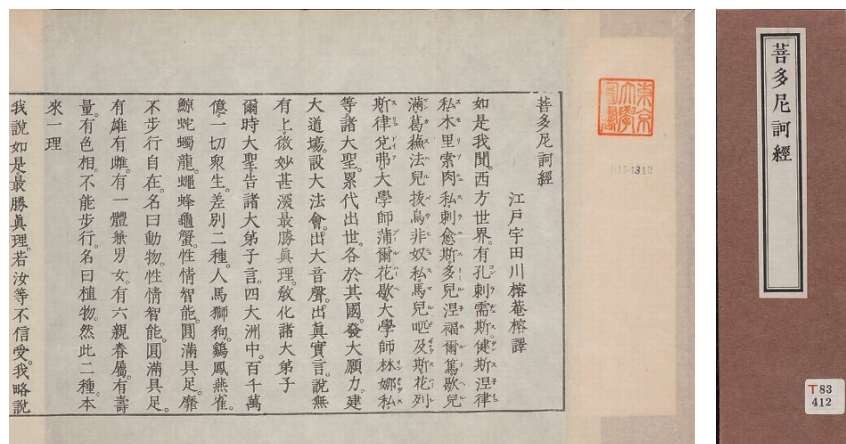 菩多尼訶經
江戸宇田川榕菴榕譯
如是我聞。西方世界。有孔剌需斯健斯涅律
私木里索肉私剌愈斯多兒涅福爾篤歇兒
滿葛蕪法兒抜烏非奴私馬兒吧及斯花列
斯律兌弗大學師蒲爾花歇大學師林娜私
等諸大聖。累代出世。各於其國。發大願力。建
大道場。設大法會。出大音聲。出眞實言。說無
有上微妙甚深最勝眞理。敎化諸大弟子
爾時大聖告諸大弟子言。四大洲中。百千萬
億一切衆生。差別二種。人馬獅狗。鷄鳳燕雀。
鯨蛇蠋龍。蠅蜂龜蟹。性情智能。圓滿具足。靡
不步行自在。名曰動物。性情智能。圓滿具足。
有雄有雌。有一體兼男女。有六親眷屬。有壽
量。有色相。不能步行。名曰植物。然此二種。本
來一理。
我說如是最勝眞理。若汝等不信受。我略說
菩多尼訶經
T83
412